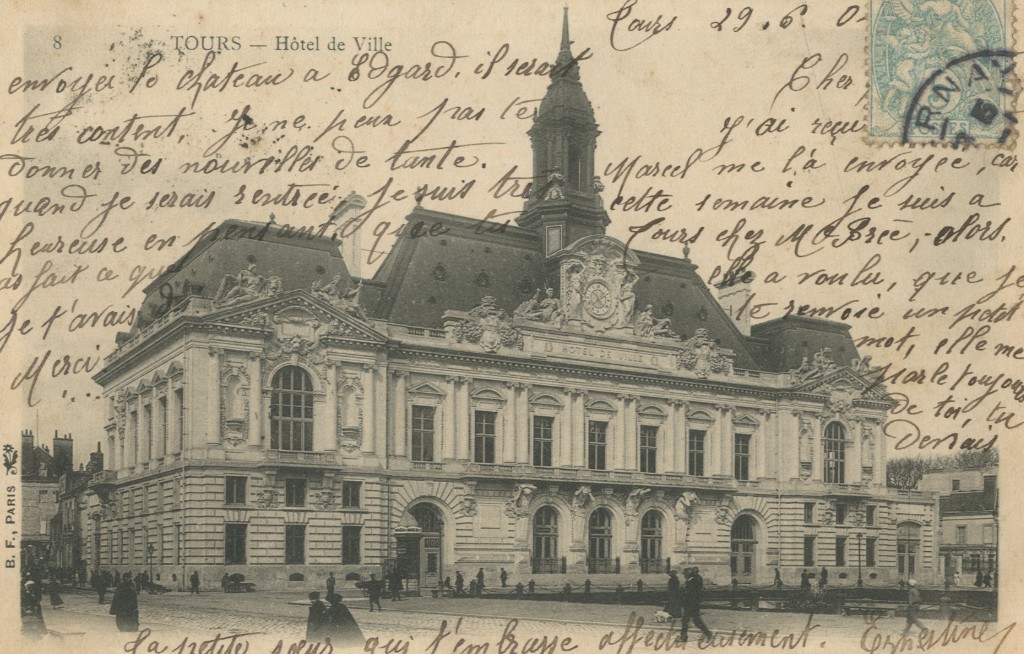 8 TOURS — Hôtel de Ville
Tours 29.6.0
Cher
J'ai reçu
Marcel me l'a envoyée, car
cette semaine je suis a
Tours chez M Brée, alors.
elle a voulu, que je
te renvoie un petit
mot, elle me
parle toujours
de toi, tu
devrais
envoyer le chateau a Edgard. il serait
très content, Je ne peux pas te
donner des nouvelles de tante.
quand je serais rentrée. je suis très
heureuse en pensant, que tu
as fait ce que
je t'avais
Merci
....
HOTEL DE VILLE
B. F., PARIS
La petite sœur qui t'embrasse affectueusement. Ernestine